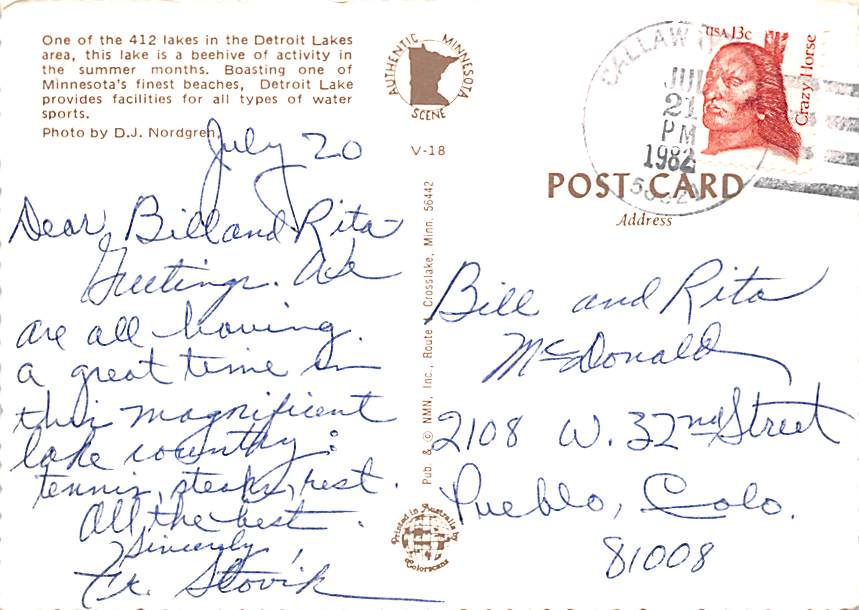 One of the 412 lakes in the Detroit Lakes
area, this lake is a beehive of activity in
the summer months. Boasting one of
Minnesota's finest beaches, Detroit Lake
provides facilities for all types of water
sports.
Photo by D.J. Nordgren.
AUTHENTIC MINNESOTA
SCENE
V-18
July 20
Dear Bill and Rita
Greetings. We
are all having
a great time in
this magnificent
lake country:
tennis, steaks, rest.
All the best.
Sincerely,
Fr. Slovik
Pub. & © NMN, Inc., Route 1, Crosslake, Minn. 56442
Printed in Australia by
Colorscans
USA 13c
Crazy Horse
CALLAWAY
21
PM
1982
POST CARD
Address
Bill and Rita
McDonald
2108 W. 32nd Street
Pueblo, Colo.
81008